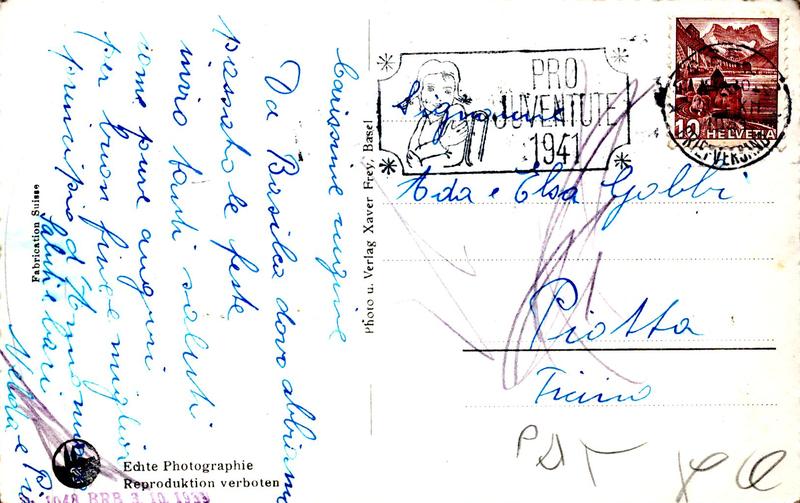 Carissime cugine
Da Basilea dove abbiamo
passato le feste
invio tanti saluti
come pure auguri
per buon fine e miglior
principio d'Anno nuovo
Saluti e baci
Nelda e
Fabrication Suisse
Echte Photographie
Reproduktion verboten
1048 BRB 3.10.1933
Photo u. Verlag Xaver Frey, Basel
PRO
JUVENTUTE
1941
10 HELVETIA
BRIEF-VERSAND
Signorine
Ada e Elsa Gobbi
Piotta
Ticino